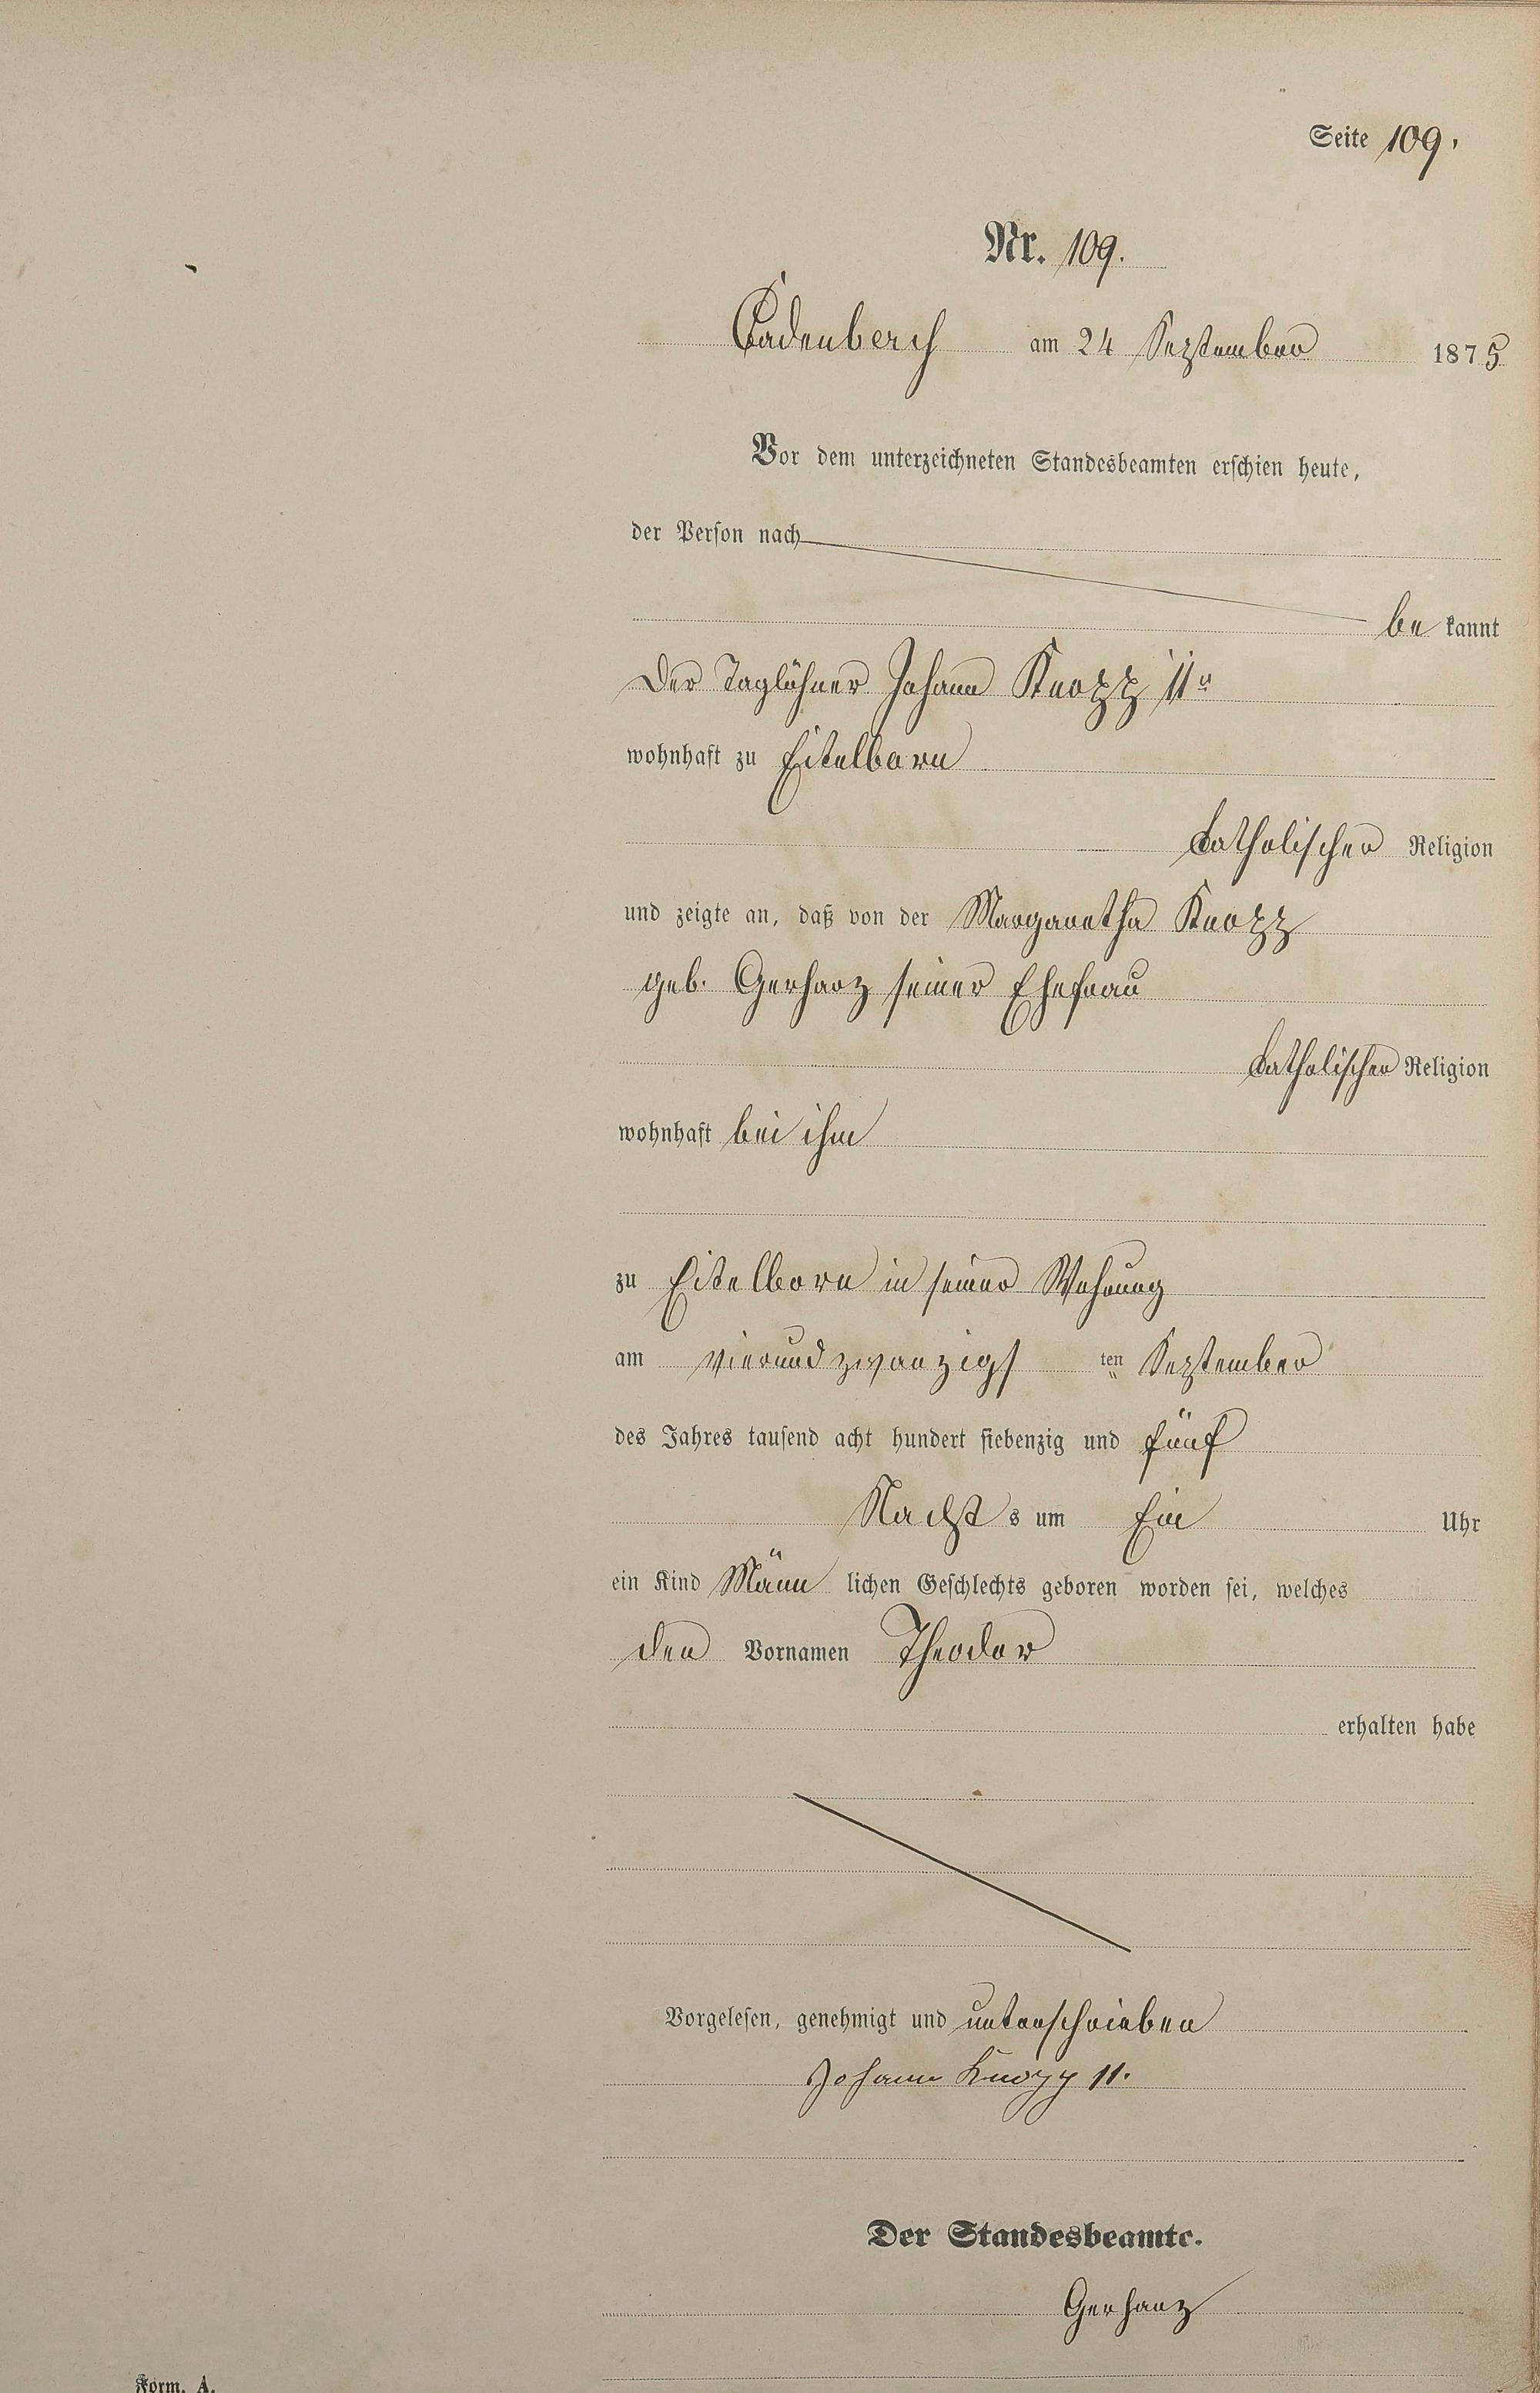 Seite 109.
Nr. 109.
Cadenbach am 24 September 1875
Vor dem unterzeichneten Standesbeamten erschien heute,
der Person nach
be kannt
Der Taglöhner Johann Knopp II
wohnhaft zu Eitelborn
katholischer Religion
und zeigte an, daß von der Margaretha Knopp
geb. Gerharz seiner Ehefrau
katholischer Religion
wohnhaft bei ihm
zu Eitelborn in seiner Wohnung
am vierundzwanzigs ten September
des Jahres tausend acht hundert siebenzig und fünf
Nacht s um Ein Uhr
ein Kind Männ lichen Geschlechts geboren worden sei, welches
den Vornamen Theodor
erhalten habe
Vorgelesen, genehmigt und unterschrieben
Johann Knopp II.
Der Standesbeamte.
Gerharz
Form. A.